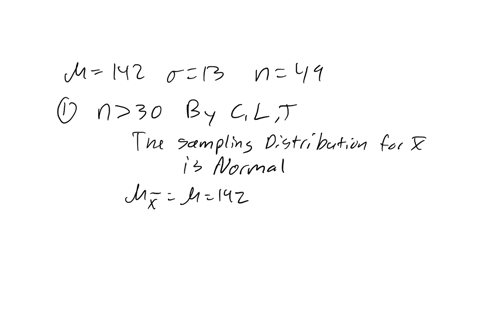 μ=142 σ=13 n=49
① n>30 By C,L,T
The sampling Distribution for x̄
is Normal
μx̄=μ=142